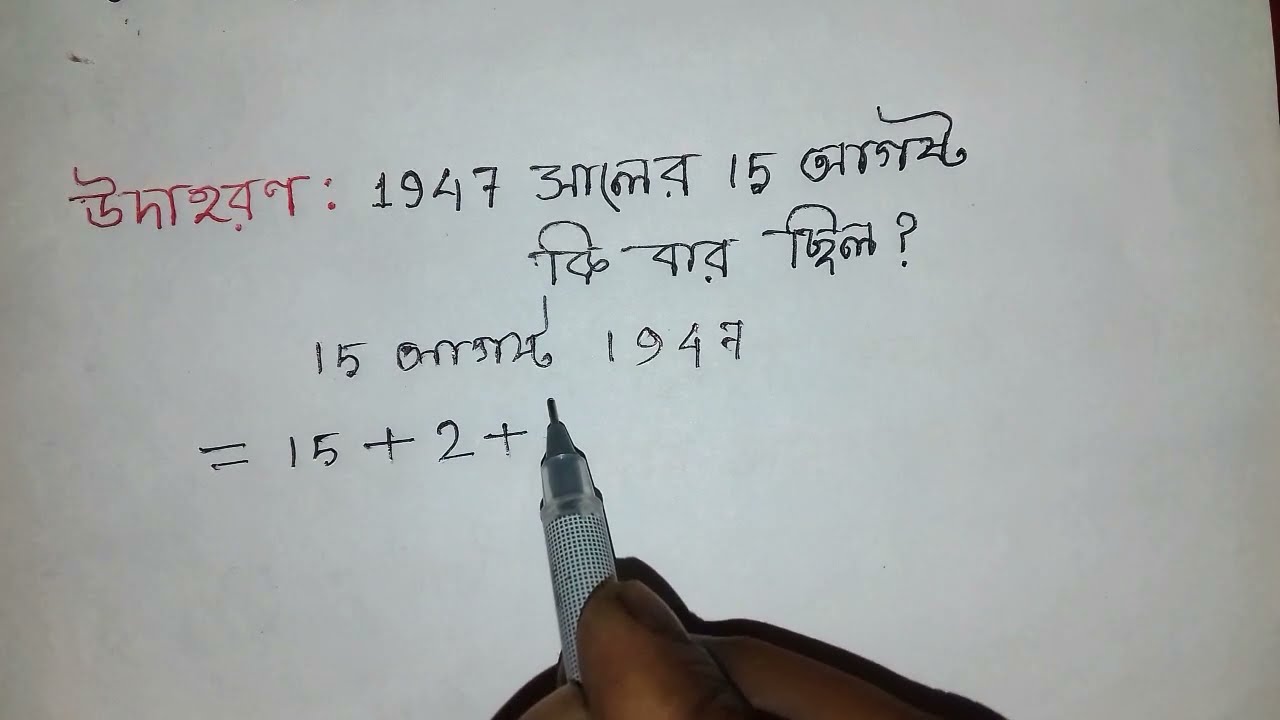 উদাহরণ: 1947 সালের 15 আগষ্ট
কি বার ছিল?
15 আগষ্ট 1947
= 15 + 2 +